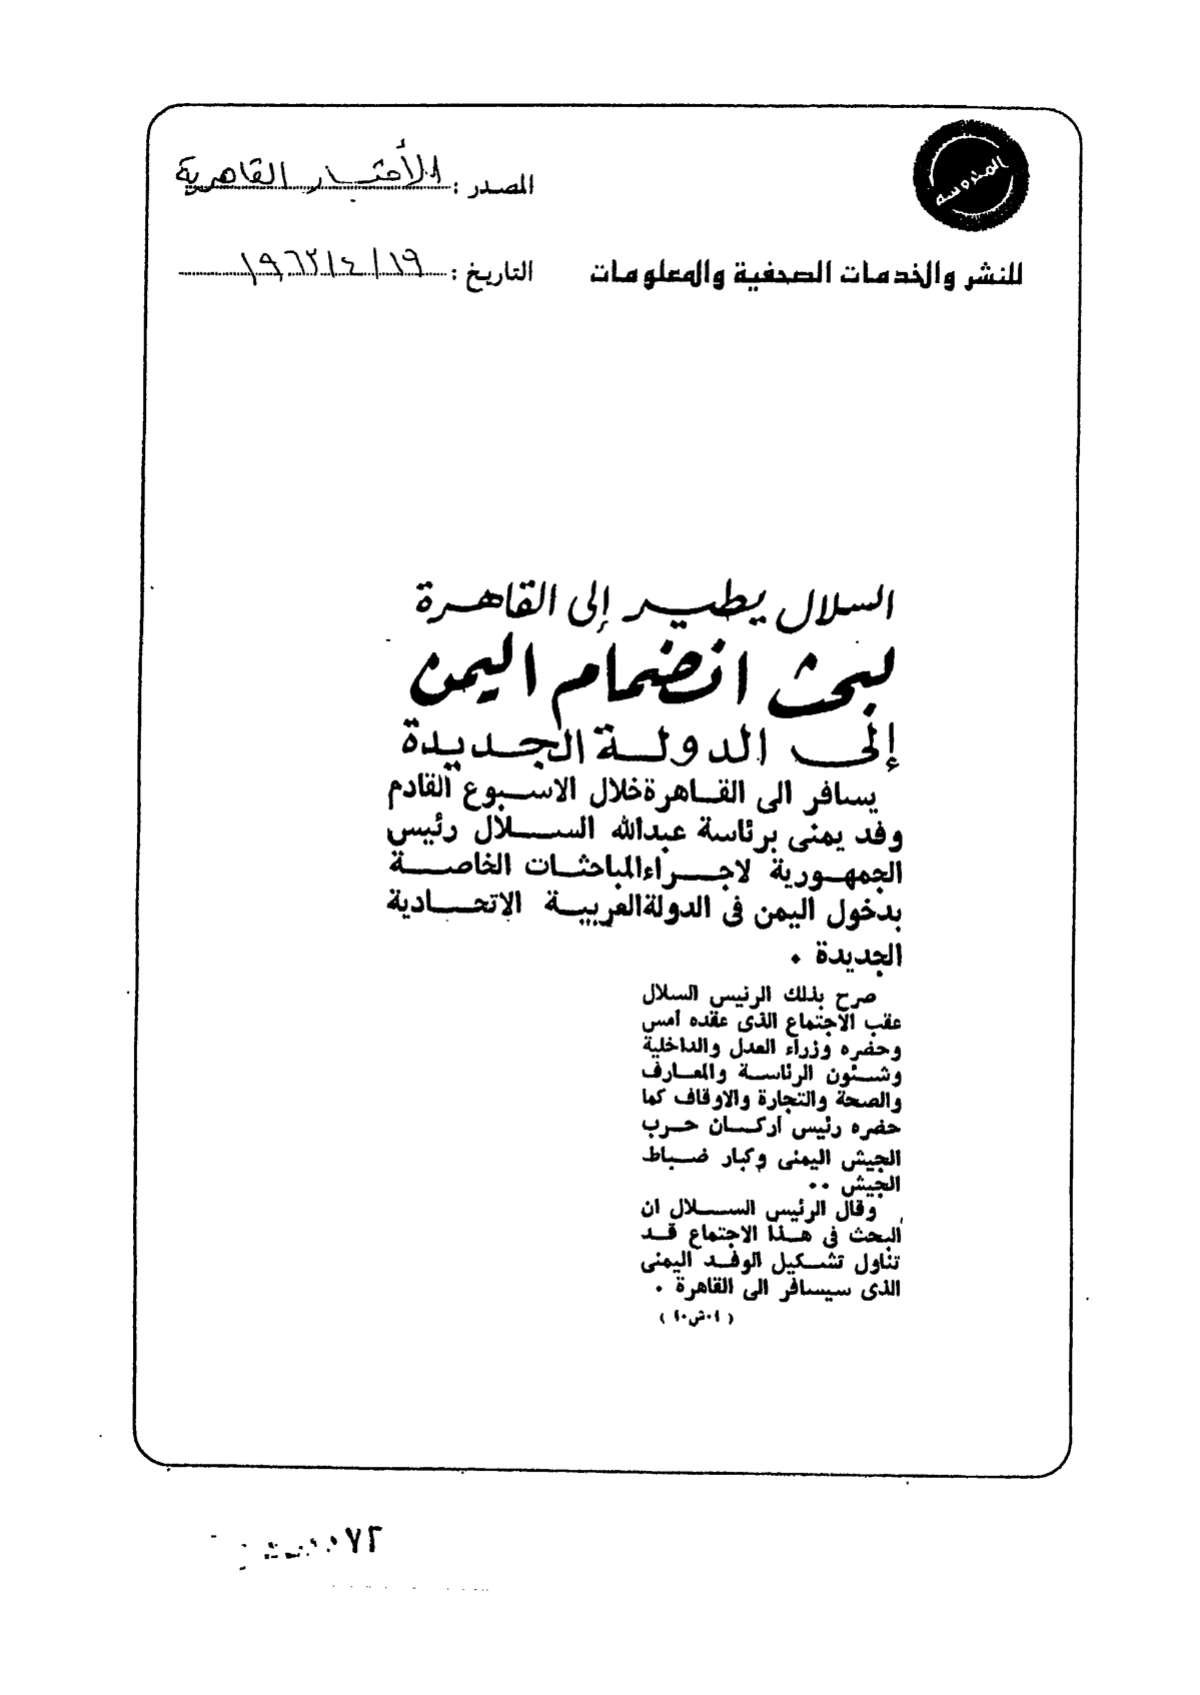 المحروسة
المصدر : الأخبار القاهرية
للنشر والخدمات الصحفية والمعلومات
التاريخ : ١٩/٤/١٩٦٣
السلال يطير إلى القاهرة
لبحث انضمام اليمن
إلى الدولة الجديدة
يسافر الى القاهرة خلال الاسبوع القادم
وفد يمنى برئاسة عبدالله السلال رئيس
الجمهورية لاجراء المباحثات الخاصة
بدخول اليمن فى الدولة العربية الاتحادية
الجديدة .
صرح بذلك الرئيس السلال
عقب الاجتماع الذى عقده أمس
وحضره وزراء العدل والداخلية
وشئون الرئاسة والمعارف
والصحة والتجارة والاوقاف كما
حضره رئيس أركان حرب
الجيش اليمنى وكبار ضباط
الجيش ..
وقال الرئيس السلال ان
البحث فى هذا الاجتماع قد
تناول تشكيل الوفد اليمنى
الذى سيسافر الى القاهرة .
( أ.ش.أ )